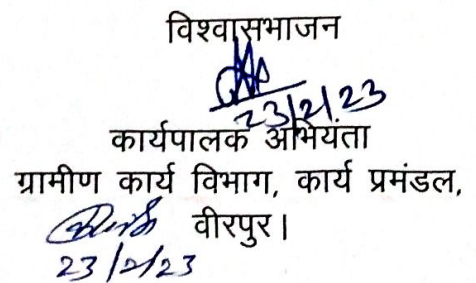 विश्वासभाजन
23/2/23
कार्यपालक अभियंता
ग्रामीण कार्य विभाग, कार्य प्रमंडल,
वीरपुर।
23/2/23